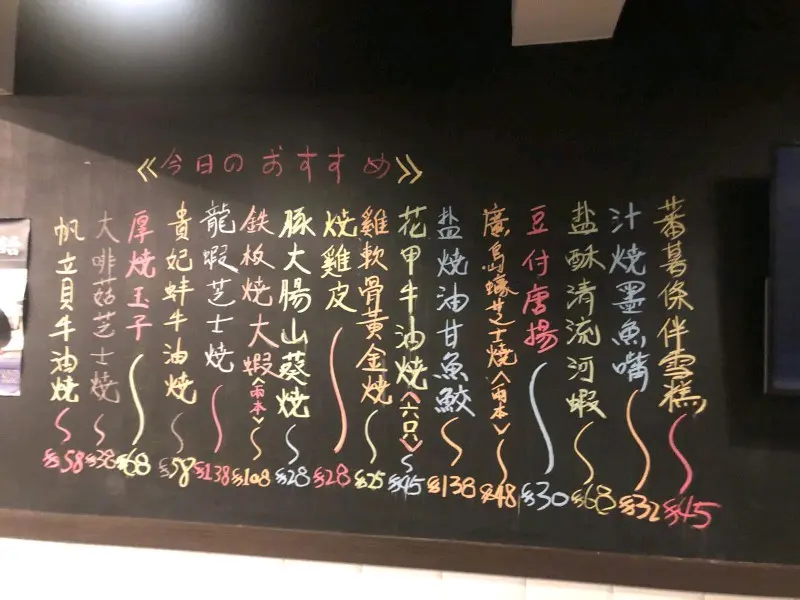 《今日のおすすめ》
蕃薯條伴雪糕 $45
汁燒墨魚嘴 $32
盐酥清流河蝦 $68
豆付唐揚 $30
廣島蠔芝士燒〈兩本〉 $48
盐燒油甘魚鮫 $138
花甲牛油燒〈六只〉 $45
雞軟骨黃金燒 $25
燒雞皮 $28
豚大腸山葵燒 $28
鉄板燒大蝦〈兩本〉 $108
龍蝦芝士燒 $138
貴妃蚌牛油燒 $58
厚燒玉子 $68
大啡菇芝士燒 $38
帆立貝牛油燒 $58